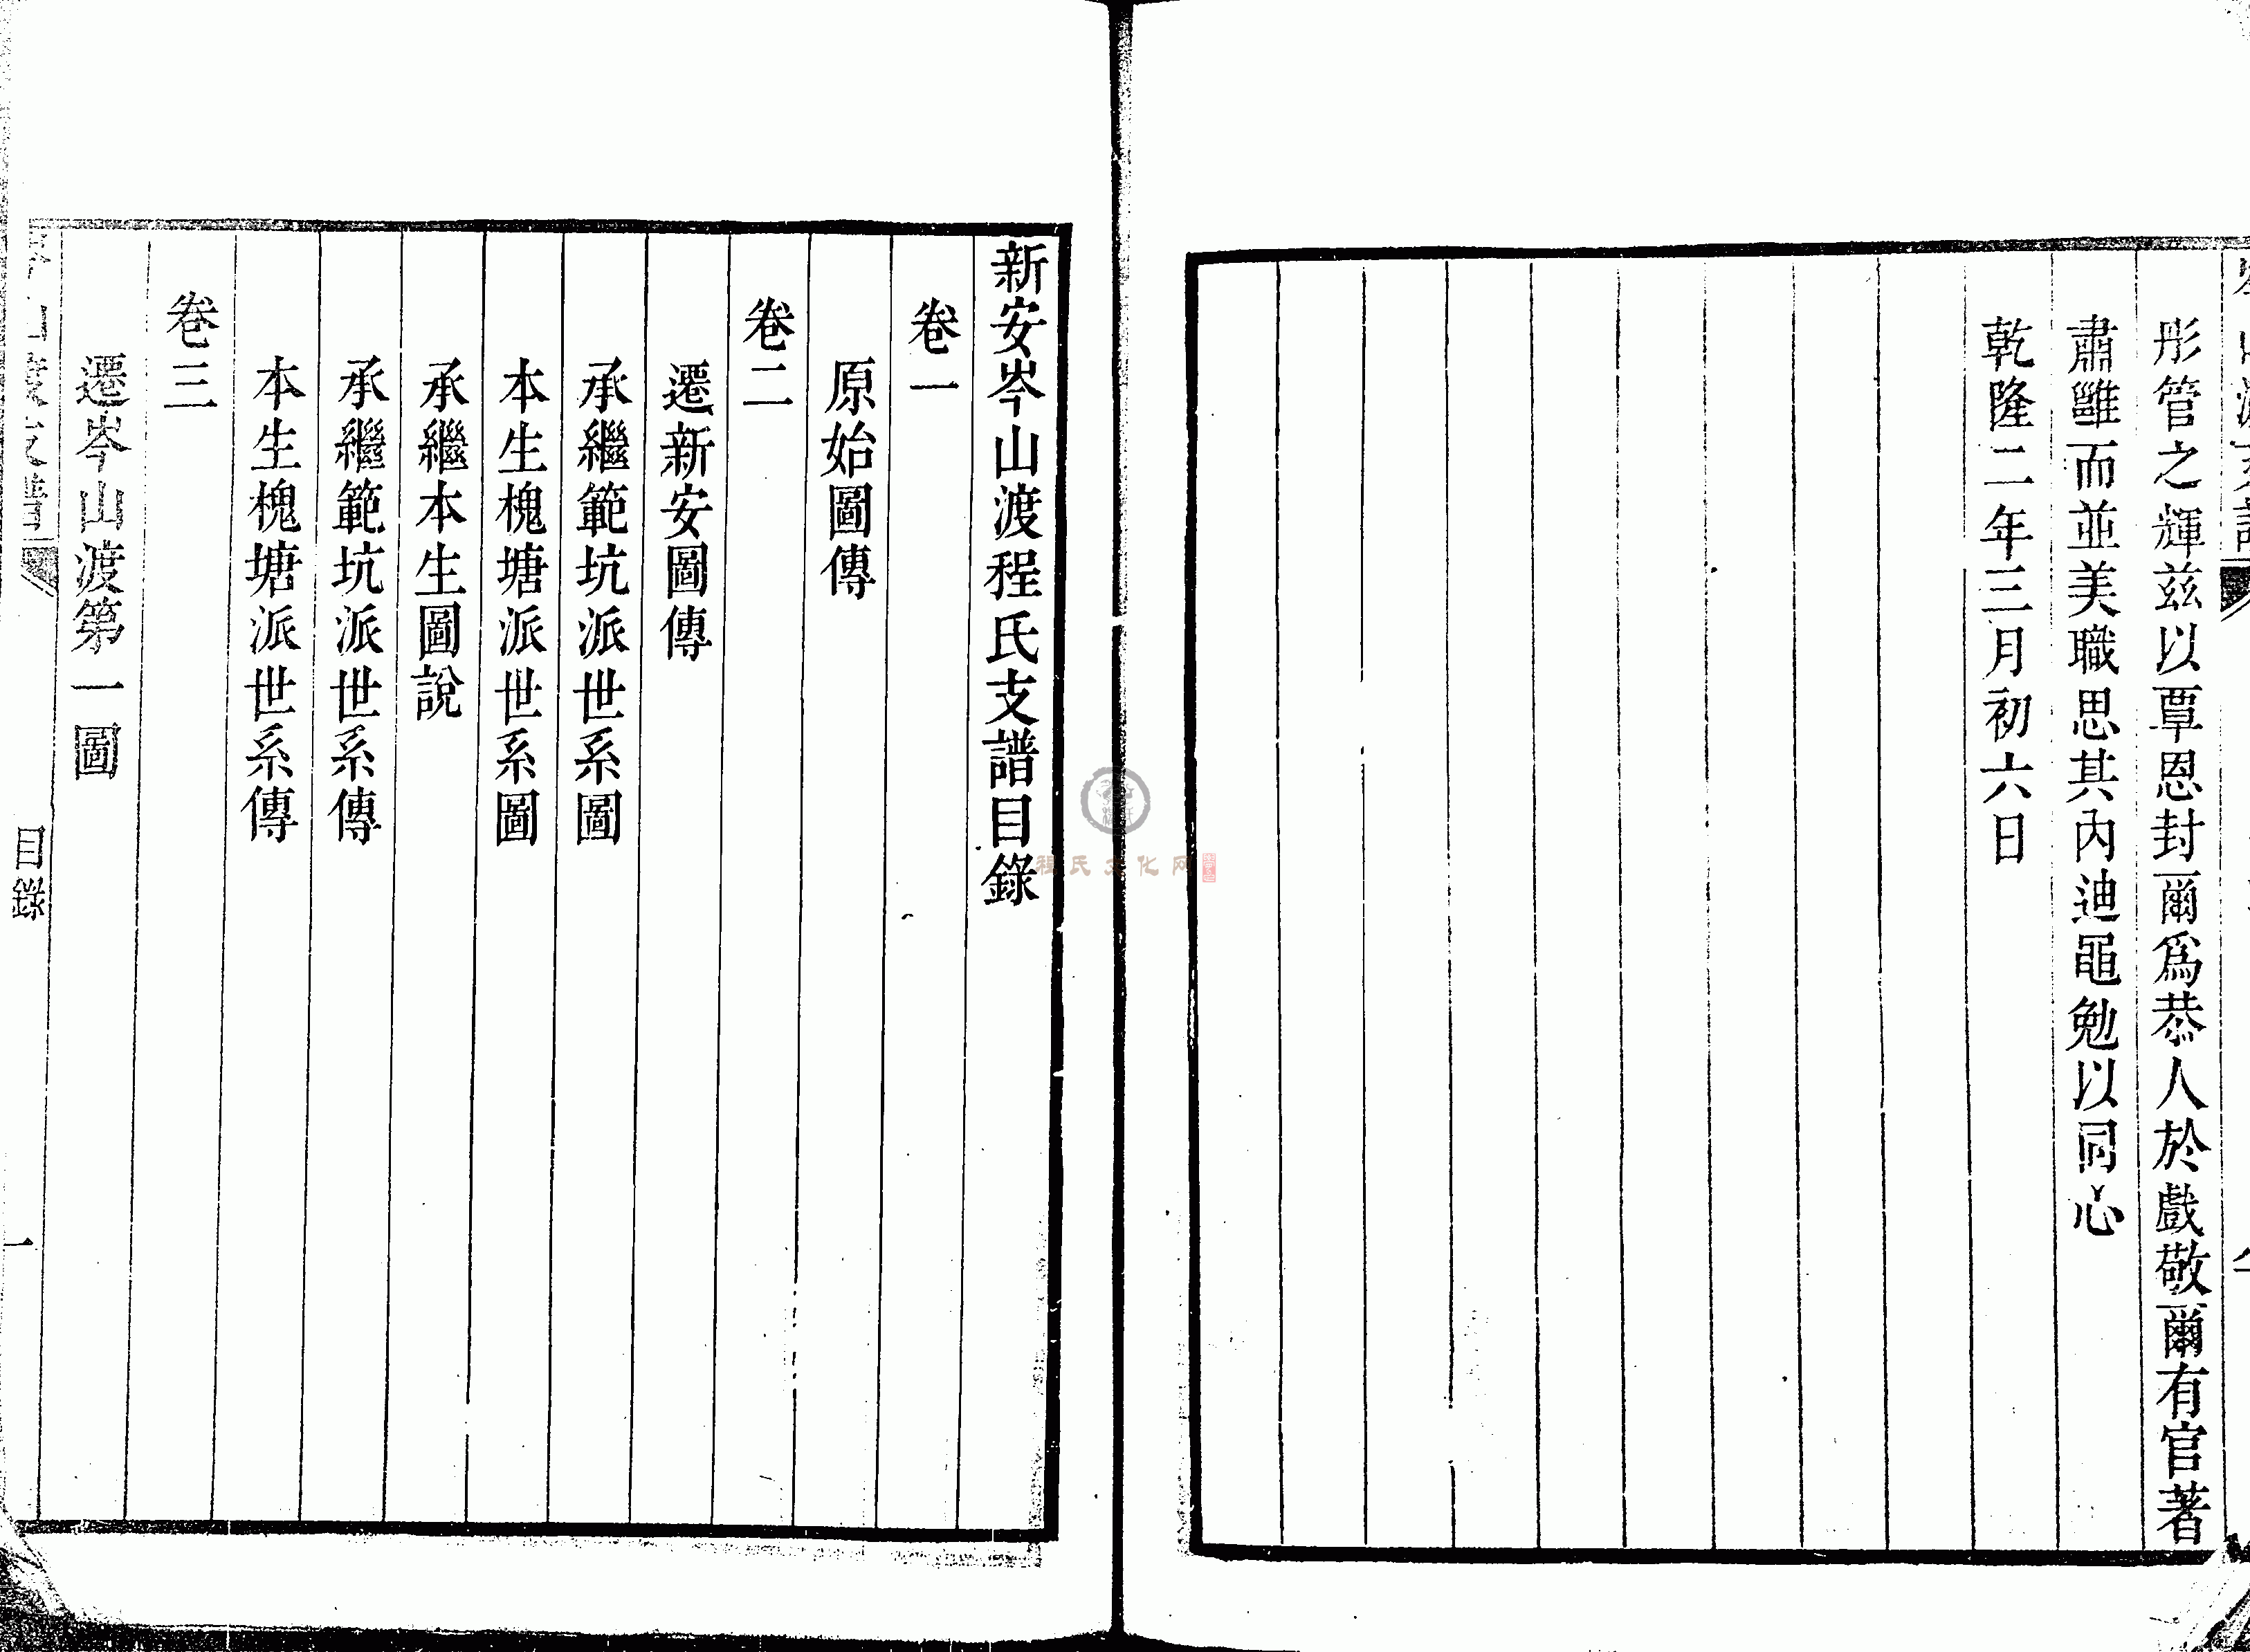 彤管之輝兹以覃恩封爾爲恭人於戲敬爾有官著
肅雝而並美職思其內迪黽勉以同心
乾隆二年三月初六日
新安岑山渡程氏支譜目錄
卷一
原始圖傳
卷二
遷新安圖傳
承繼範坑派世系圖
本生槐塘派世系圖
承繼本生圖說
承繼範坑派世系傳
本生槐塘派世系傳
卷三
遷岑山渡第一圖
山渡支譜
目錄
一
程氏文化网